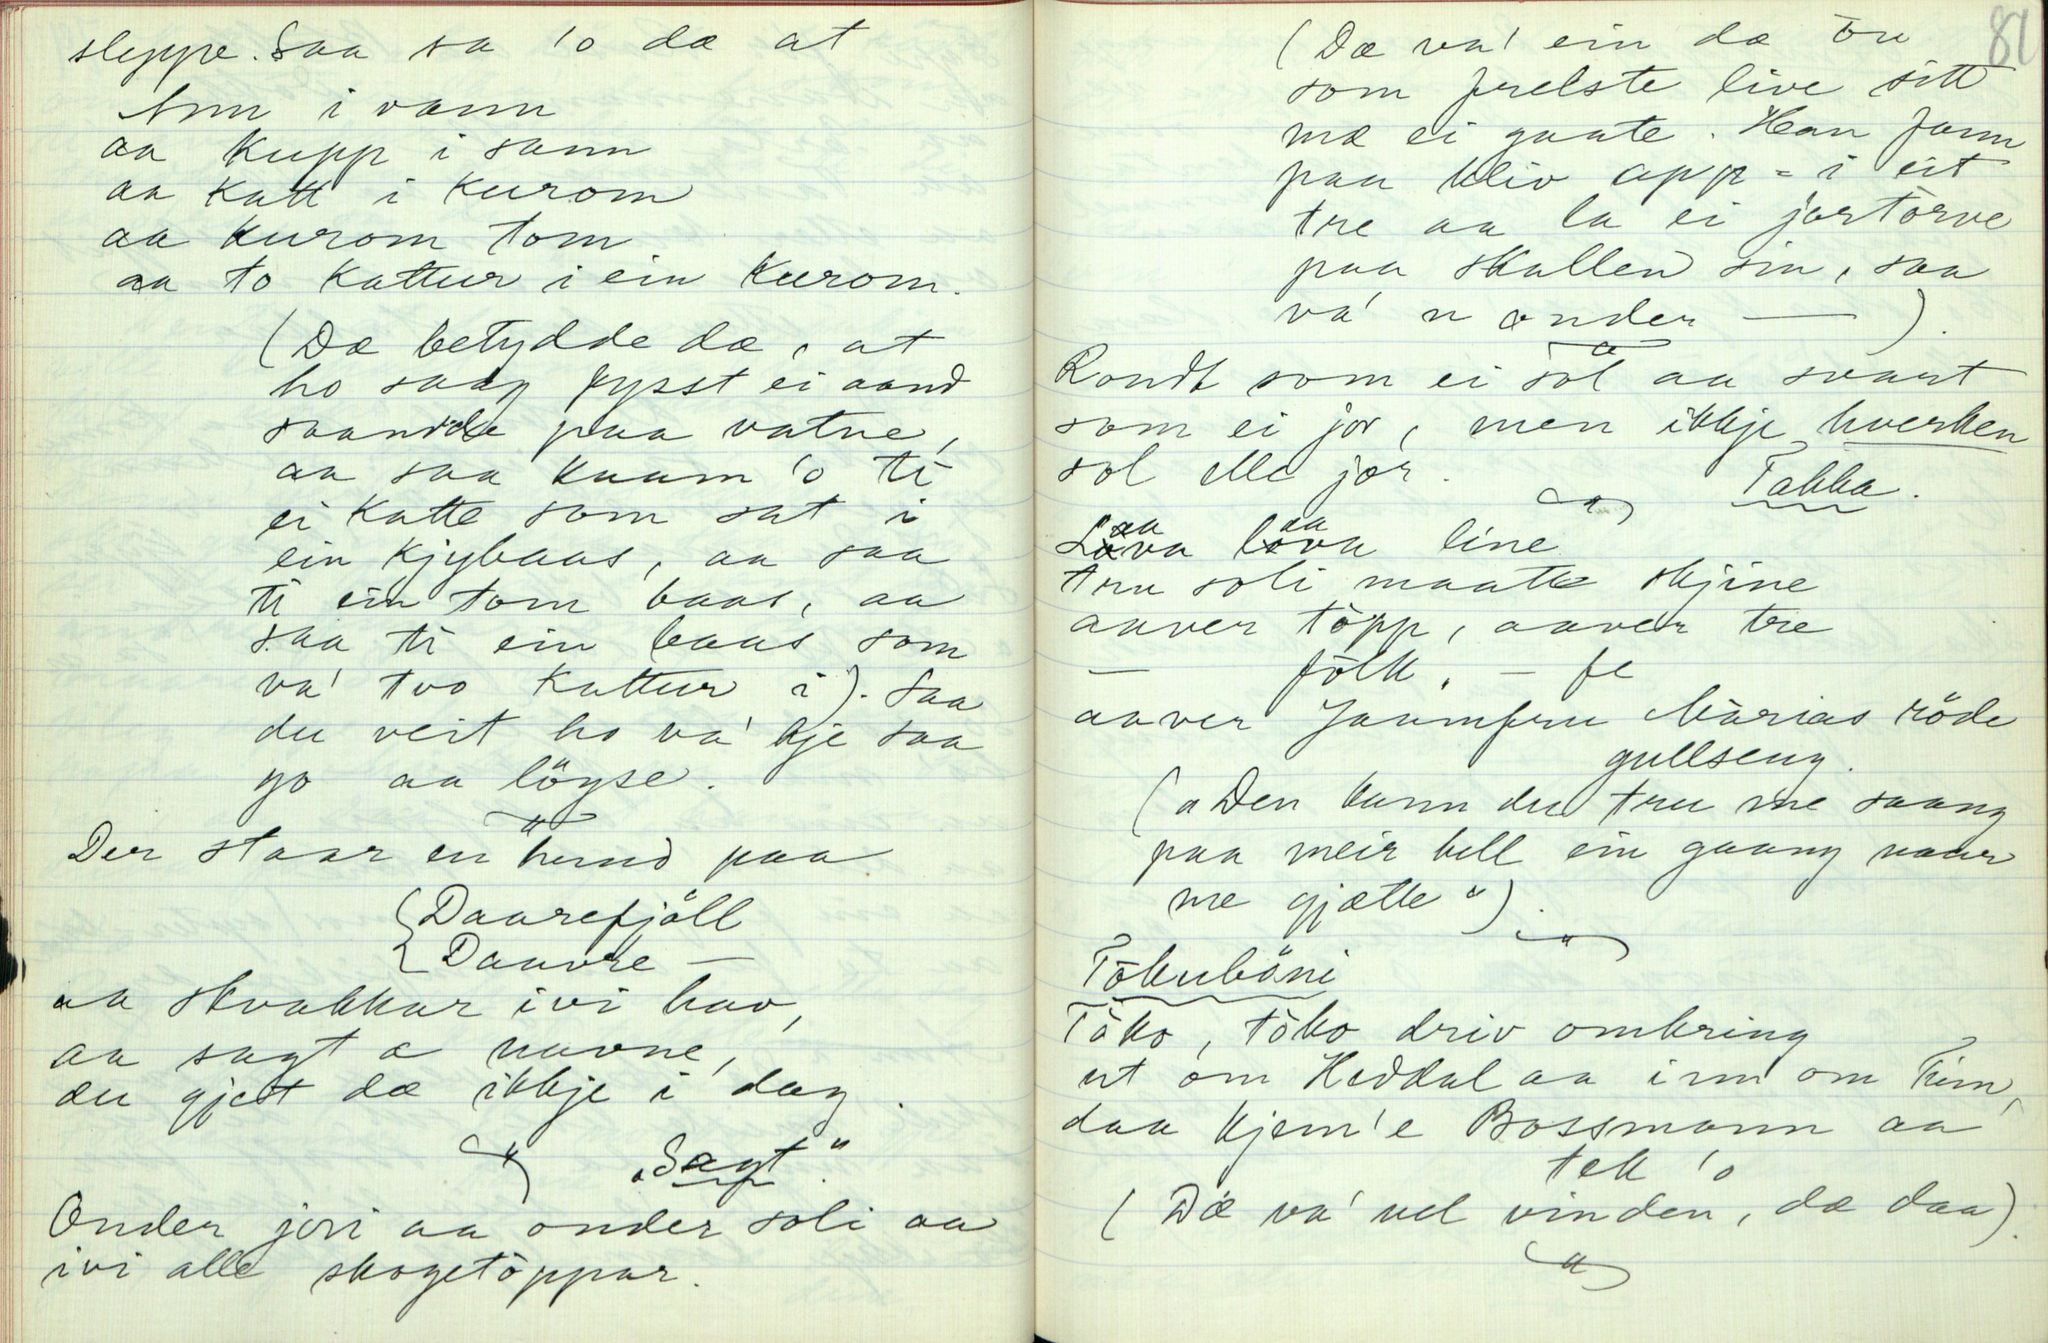 sleppe. Saa sa 'o dæ at
Ann i vann
aa Kupp i sann
aa Katt i kurom
aa kurom tom
aa to kattur i ein kurom.
(Dæ betydde dæ, at
ho saag fysst ei aand
saandde paa vatne,
aa saa kaam 'o ti
ei katte som sat i
ein kjybaas, aa saa
ti ein tom baas, aa
saa ti ein baas som
va' tvo kattur i). Saa
du veit ho va' kje saa
go aa löyse.
Der staar en hund paa
Daarefjöll
Daavre —
aa skvakkar ivi hav,
aa sagt æ navne,
du gjet dæ ikkje i dag.
„Sagt."
Onder jori aa onder soli aa
ivi alle skogetöppar.
81
(Dæ va' ein dæ òu
som frelste live sitt
mæ ei gaate. Han fann
paa kliv opp-i eit
tre aa la ei jortòrve
paa skallen sin, saa
va' 'n onder —).
Rondt som ei sol aa svart
som ei jor, men ikkje hverken
sol elle jor.
Takka.
Laava laava line
tru soli maatte skjine
aaver töpp, aaver tre
— fòlk, — fe
aaver Jaamfru Marias röde
gullseng.
(„Den kann du tru me saang
paa meir hell ein gaang naar
me gjætte").
Tökuböni
Töko, töko driv omkring
ut om Heddal aa inn om Tinn,
daa kjem'e Bossmann aa
tek 'o
(Dæ va' vel vinden, dæ daa).